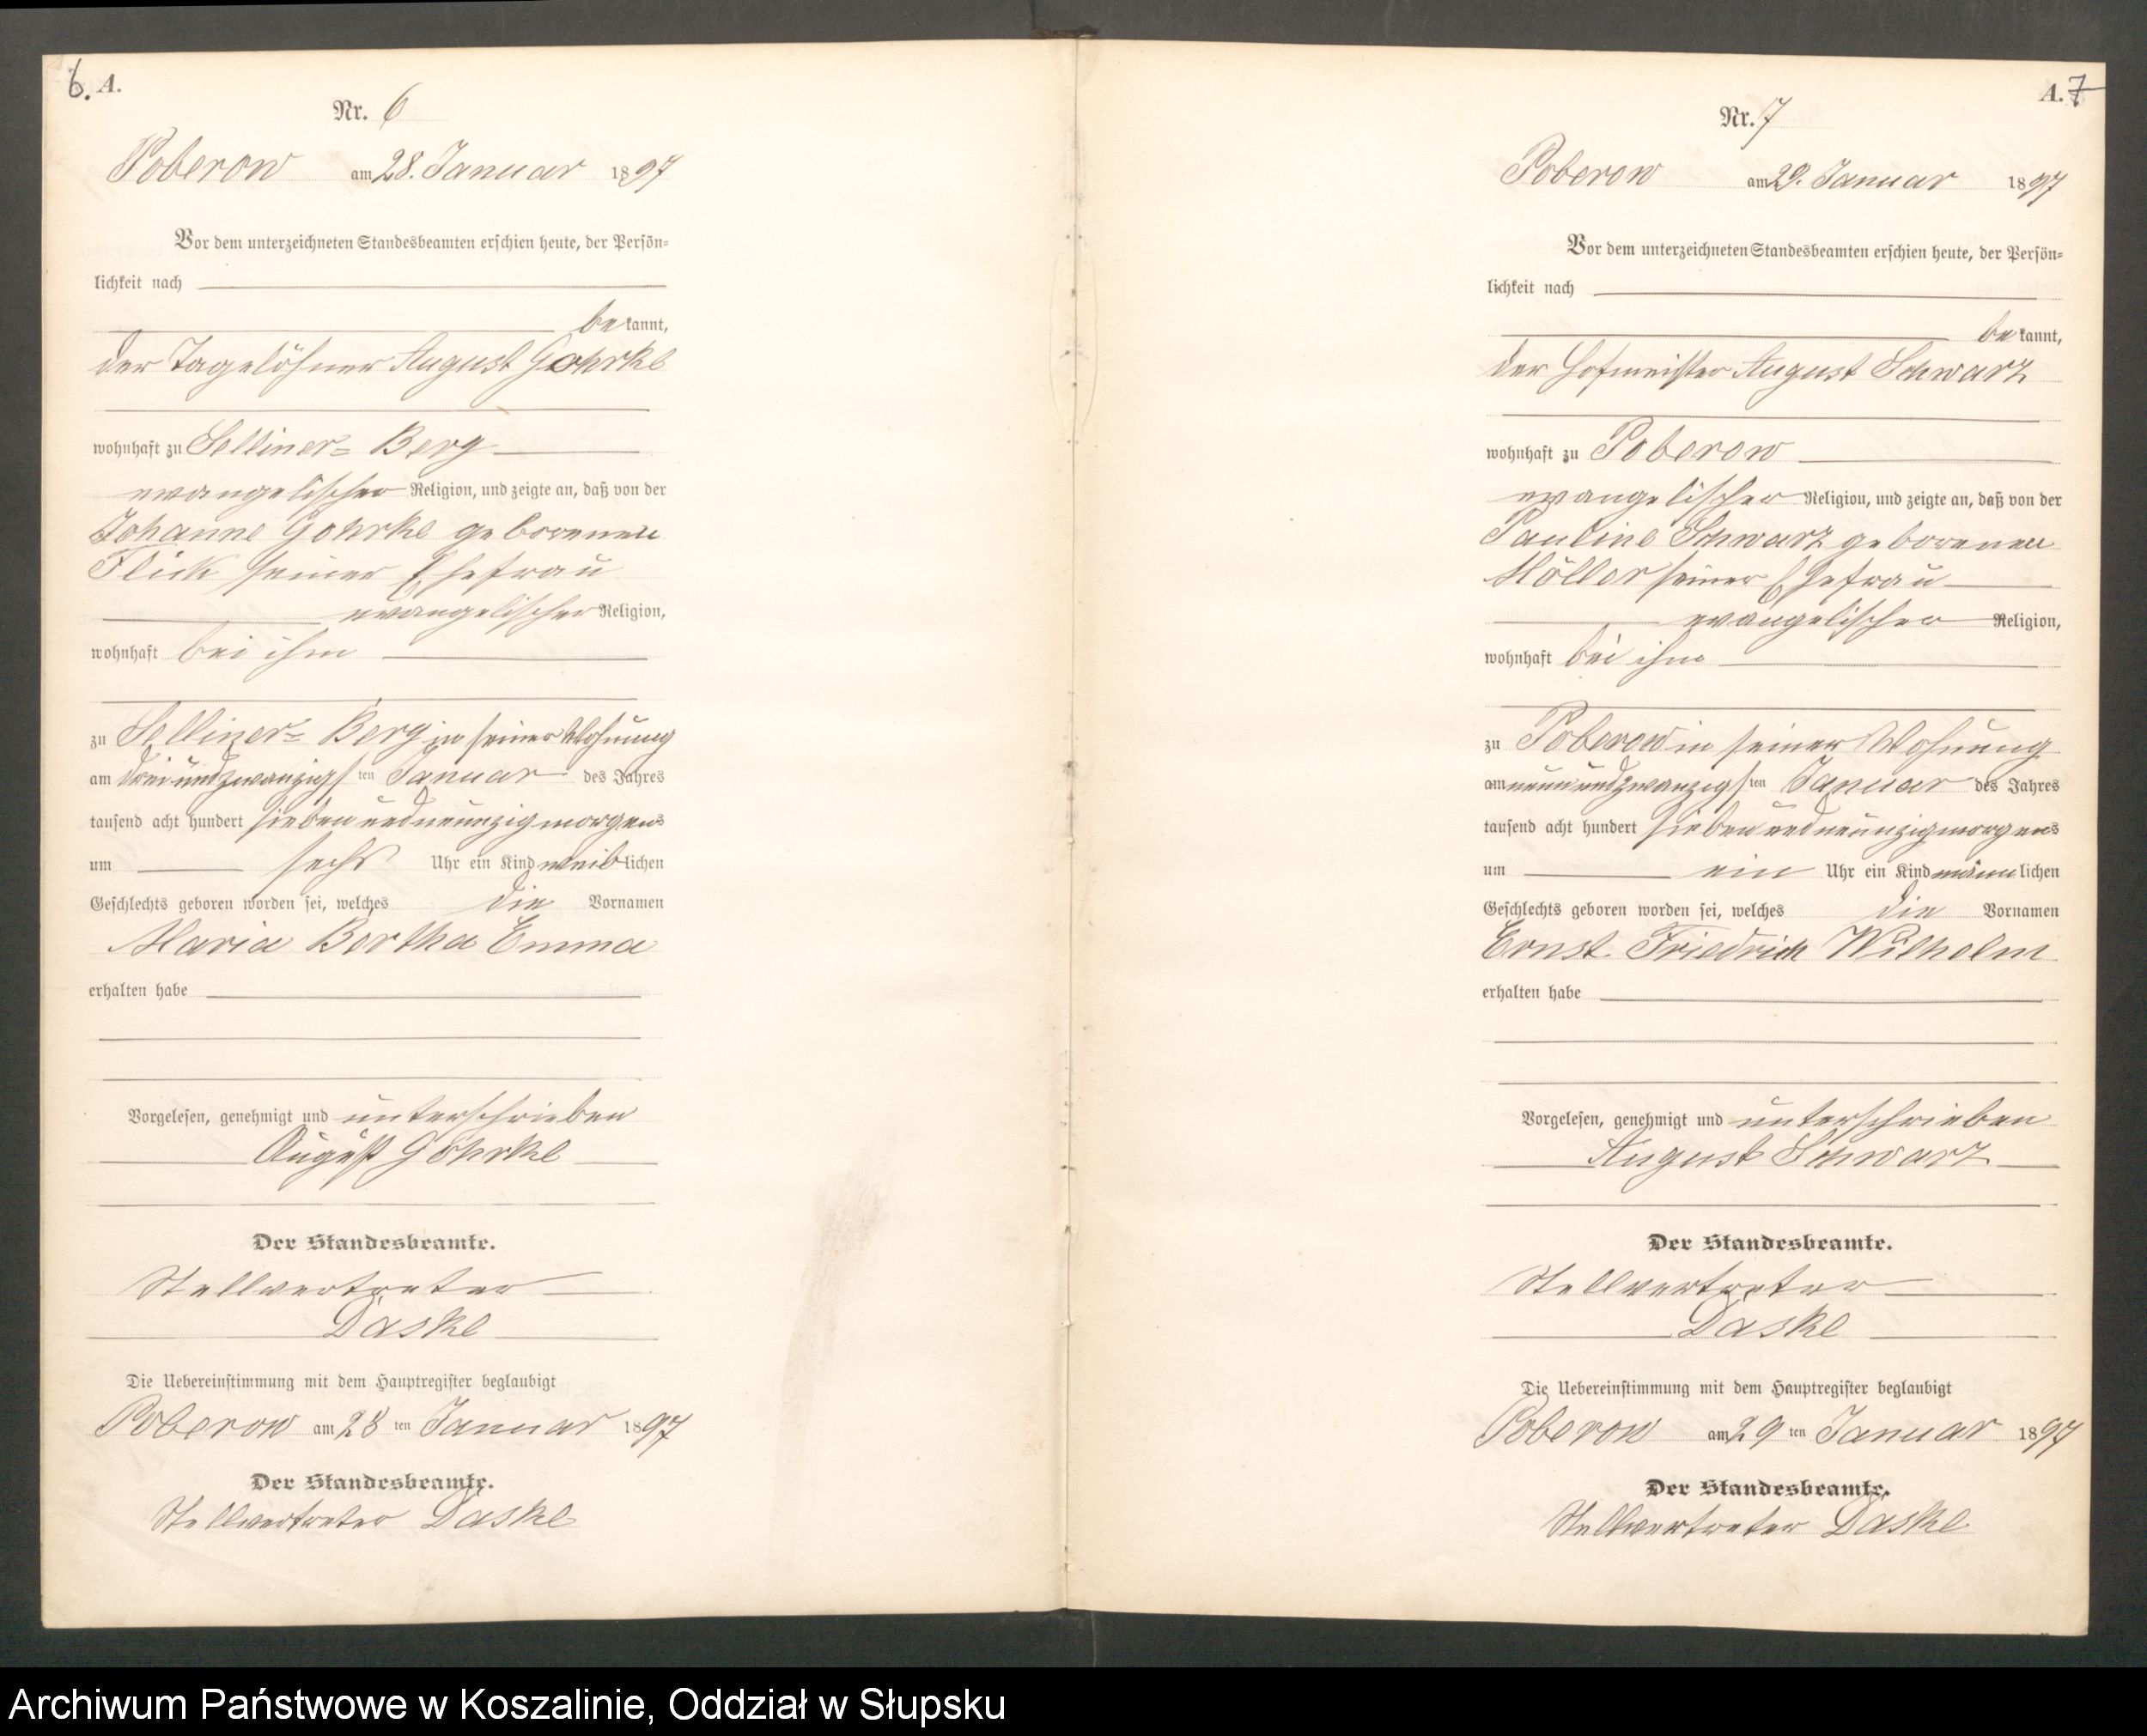 6. A.
Nr. 6
Poberow am 28. Januar 1897
Vor dem unterzeichneten Standesbeamten erschien heute, der Persön-
lichkeit nach
bekannt,
der Tagelöhner August Gohrke
wohnhaft zu Selliner- Berg
evangelischer Religion, und zeigte an, daß von der
Johanne Gohrke geborenen
Flick seiner Ehefrau
evangelischer Religion,
wohnhaft bei ihm
zu Selliner- Berg in seiner Wohnung
am drei und zwanzigsten Januar des Jahres
tausend acht hundert sieben und neunzig morgens
um sechs Uhr ein Kind weiblichen
Geschlechts geboren worden sei, welches die Vornamen
Maria Bertha Emma
erhalten habe
Vorgelesen, genehmigt und unterschrieben
August Gohrke
Der Standesbeamte.
Stellvertreter
Daske
Die Uebereinstimmung mit dem Hauptregister beglaubigt
Poberow am 28 ten Januar 1897
Der Standesbeamte.
Stellvertreter Daske
A. 7
Nr. 7
Poberow am 29. Januar 1897
Vor dem unterzeichneten Standesbeamten erschien heute, der Persön-
lichkeit nach
bekannt,
der Hofmeister August Schwarz
wohnhaft zu Poberow
evangelischer Religion, und zeigte an, daß von der
Pauline Schwarz geborenen
Möller seiner Ehefrau
evangelischer Religion,
wohnhaft bei ihm
zu Poberow in seiner Wohnung
am neun und zwanzigsten Januar des Jahres
tausend acht hundert sieben und neunzig morgens
um ein Uhr ein Kind männlichen
Geschlechts geboren worden sei, welches die Vornamen
Ernst Friedrich Wilhelm
erhalten habe
Vorgelesen, genehmigt und unterschrieben
August Schwarz
Der Standesbeamte.
Stellvertreter
Daske
Die Uebereinstimmung mit dem Hauptregister beglaubigt
Poberow am 29 ten Januar 1897
Der Standesbeamte.
Stellvertreter Daske
Archiwum Państwowe w Koszalinie, Oddział w Słupsku